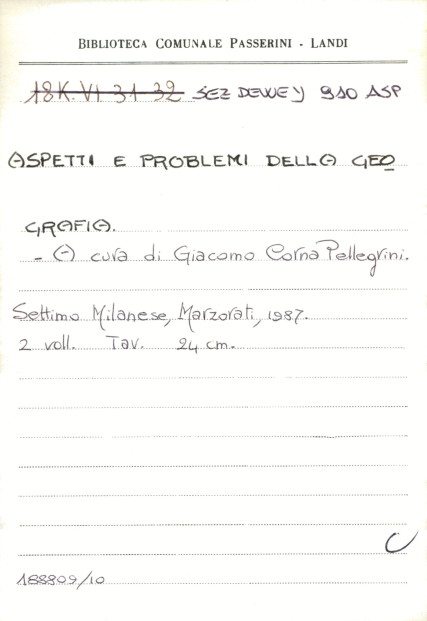 BIBLIOTECA COMUNALE PASSERINI - LANDI
18K. VI 31-32 SEZ DEWEY 910 ASP
ASPETTI E PROBLEMI DELLA GEO
GRAFIA.
- A cura di Giacomo Corna Pellegrini.
Settimo Milanese, Marzorati, 1987.
2 voll. Tav. 24 cm.
C
188809/10